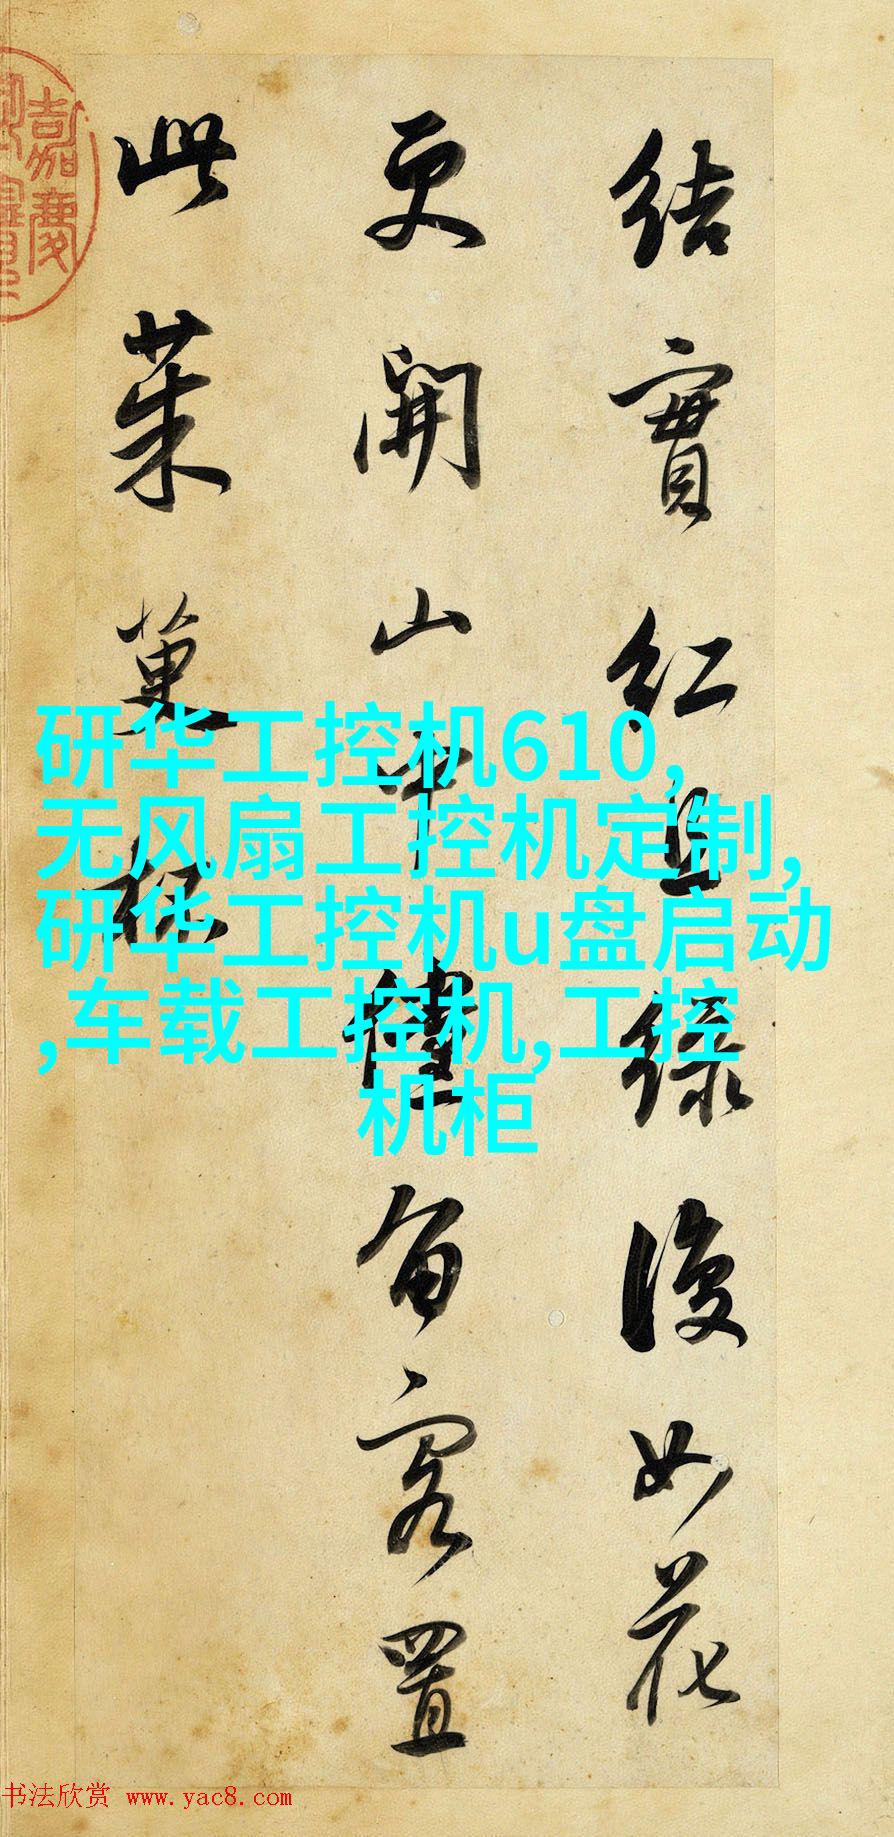 結實紅且綠復如花
更開山中儻留客置
此茱萸杯
嘉慶
研华工控机610,
无风扇工控机定制,
研华工控机u盘启动
,车载工控机,工控
机柜
书法欣赏 www.yac8.com